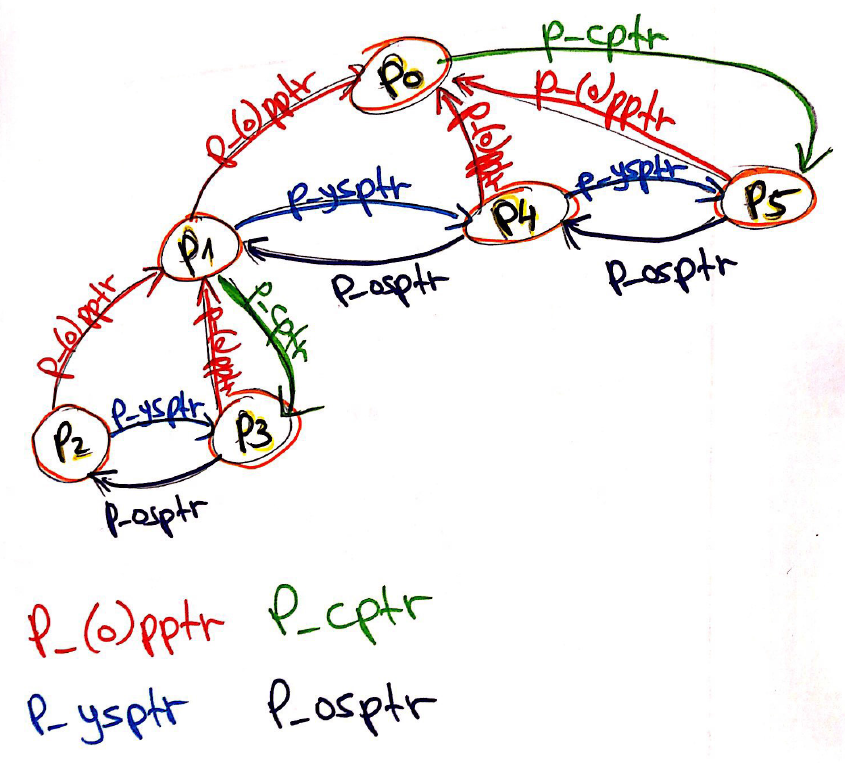 p_cptr
P0
p_(o)pptr
p_(o)pptr
p_(o)pptr
p_ysptr
p_ysptr
P4
P5
P1
p_osptr
p_osptr
p_(o)pptr
p_cptr
p_(o)pptr
p_ysptr
P2
P3
p_osptr
P_(o)pptr P_cptr
P_ysptr P_osptr